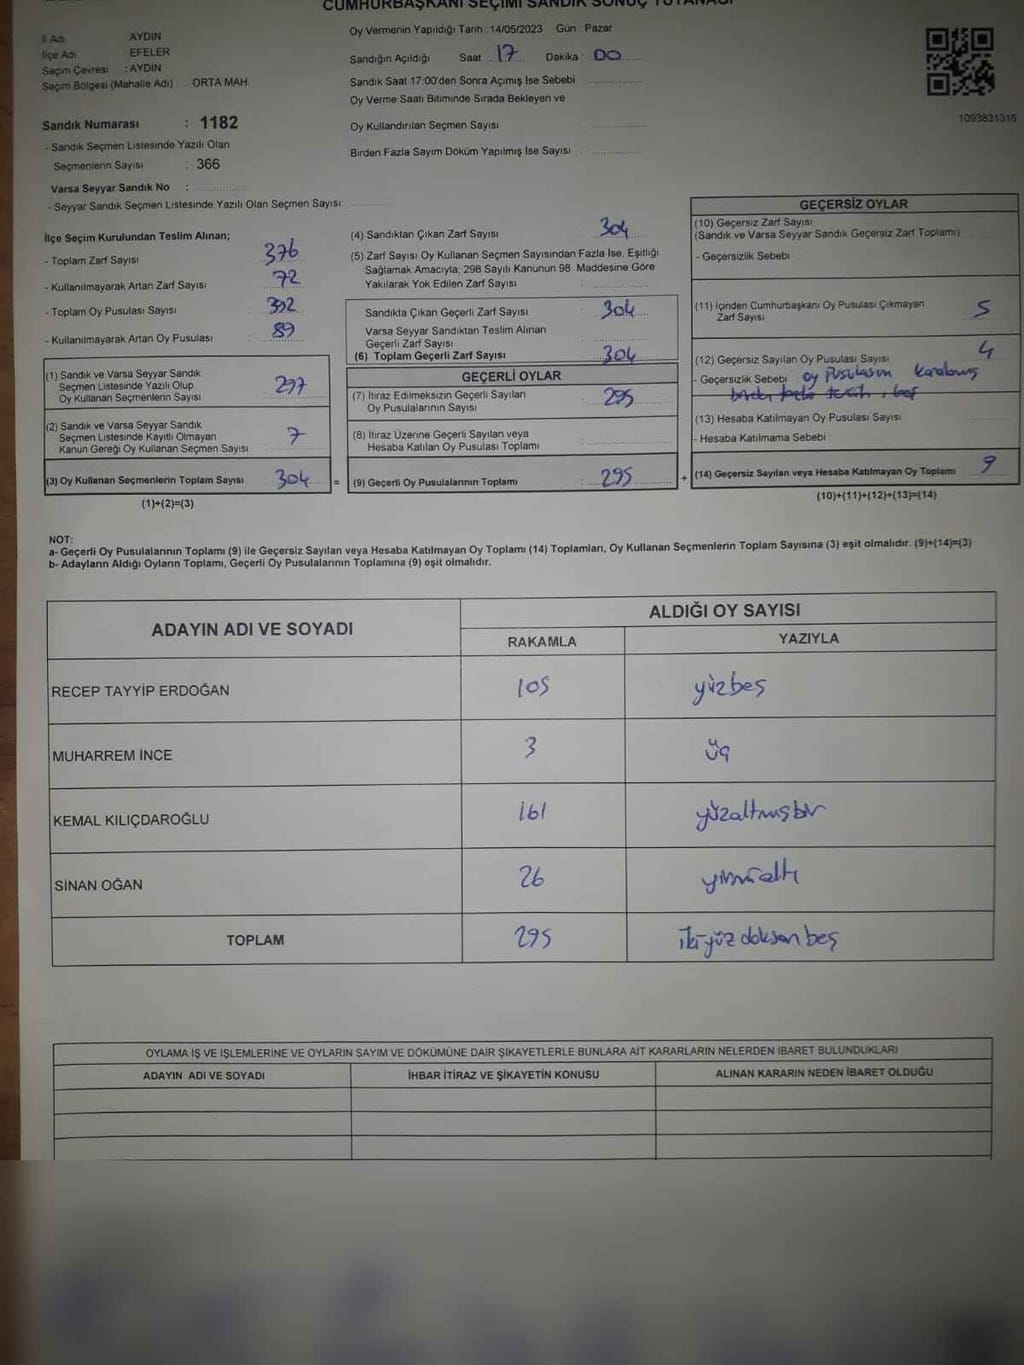 CUMHURBAŞKANI SEÇİMİ SANDIK SONUÇ TUTANAĞI
İl Adı AYDIN
İlçe Adı EFELER
Seçim Çevresi : AYDIN
Seçim Bölgesi (Mahalle Adı) ORTA MAH.
Sandık Numarası : 1182
- Sandık Seçmen Listesinde Yazılı Olan
Seçmenlerin Sayısı : 366
Varsa Seyyar Sandık No :
- Seyyar Sandık Seçmen Listesinde Yazılı Olan Seçmen Sayısı:
Oy Vermenin Yapıldığı Tarih : 14/05/2023 Gün : Pazar
Sandığın Açıldığı Saat : 17 Dakika : 00
Sandık Saat 17:00'den Sonra Açımış İse Sebebi :
Oy Verme Saati Bitiminde Sırada Bekleyen ve
Oy Kullandırılan Seçmen Sayısı
Birden Fazla Sayım Döküm Yapılmış İse Sayısı :
1093831316
İlçe Seçim Kurulundan Teslim Alınan;
- Toplam Zarf Sayısı : 376
- Kullanılmayarak Artan Zarf Sayısı : 72
- Toplam Oy Pusulası Sayısı : 392
- Kullanılmayarak Artan Oy Pusulası : 89
(1) Sandık ve Varsa Seyyar Sandık
Seçmen Listesinde Yazılı Olup
Oy Kullanan Seçmenlerin Sayısı : 297
(2) Sandık ve Varsa Seyyar Sandık
Seçmen Listesinde Kayıtlı Olmayan
Kanun Gereği Oy Kullanan Seçmen Sayısı : 7
(3) Oy Kullanan Seçmenlerin Toplam Sayısı : 304 =
(1)+(2)=(3)
(4) Sandıktan Çıkan Zarf Sayısı : 304
(5) Zarf Sayısı Oy Kullanan Seçmen Sayısından Fazla İse, Eşitliği
Sağlamak Amacıyla; 298 Sayılı Kanunun 98. Maddesine Göre
Yakılarak Yok Edilen Zarf Sayısı :
Sandıkta Çıkan Geçerli Zarf Sayısı : 304
Varsa Seyyar Sandıktan Teslim Alınan
Geçerli Zarf Sayısı :
(6) Toplam Geçerli Zarf Sayısı : 304
GEÇERLİ OYLAR
(7) İtiraz Edilmeksizin Geçerli Sayılan
Oy Pusulalarının Sayısı : 295
(8) İtiraz Üzerine Geçerli Sayılan veya
Hesaba Katılan Oy Pusulası Toplamı :
(9) Geçerli Oy Pusulalarının Toplamı : 295 +
GEÇERSİZ OYLAR
(10) Geçersiz Zarf Sayısı
(Sandık ve Varsa Seyyar Sandık Geçersiz Zarf Toplamı) :
- Geçersizlik Sebebi :
(11) İçinden Cumhurbaşkanı Oy Pusulası Çıkmayan
Zarf Sayısı : 5
(12) Geçersiz Sayılan Oy Pusulası Sayısı : 4
- Geçersizlik Sebebi : oy Pusulasın karalamış
(13) Hesaba Katılmayan Oy Pusulası Sayısı :
- Hesaba Katılmama Sebebi :
(14) Geçersiz Sayılan veya Hesaba Katılmayan Oy Toplamı : 9
(10)+(11)+(12)+(13)=(14)
NOT:
a- Geçerli Oy Pusulalarının Toplamı (9) ile Geçersiz Sayılan veya Hesaba Katılmayan Oy Toplamı (14) Toplamları, Oy Kullanan Seçmenlerin Toplam Sayısına (3) eşit olmalıdır. (9)+(14)=(3)
b- Adayların Aldığı Oyların Toplamı, Geçerli Oy Pusulalarının Toplamına (9) eşit olmalıdır.
ADAYIN ADI VE SOYADI
ALDIĞI OY SAYISI
RAKAMLA YAZIYLA
RECEP TAYYİP ERDOĞAN 105 yüzbeş
MUHARREM İNCE 3 üç
KEMAL KILIÇDAROĞLU 161 yüzaltmışbir
SİNAN OĞAN 26 yirmialtı
TOPLAM 295 ikiyüz doksan beş
OYLAMA İŞ VE İŞLEMLERİNE VE OYLARIN SAYIM VE DÖKÜMÜNE DAİR ŞİKAYETLERLE BUNLARA AİT KARARLARIN NELERDEN İBARET BULUNDUKLARI
ADAYIN ADI VE SOYADI İHBAR İTİRAZ VE ŞİKAYETİN KONUSU ALINAN KARARIN NEDEN İBARET OLDUĞU